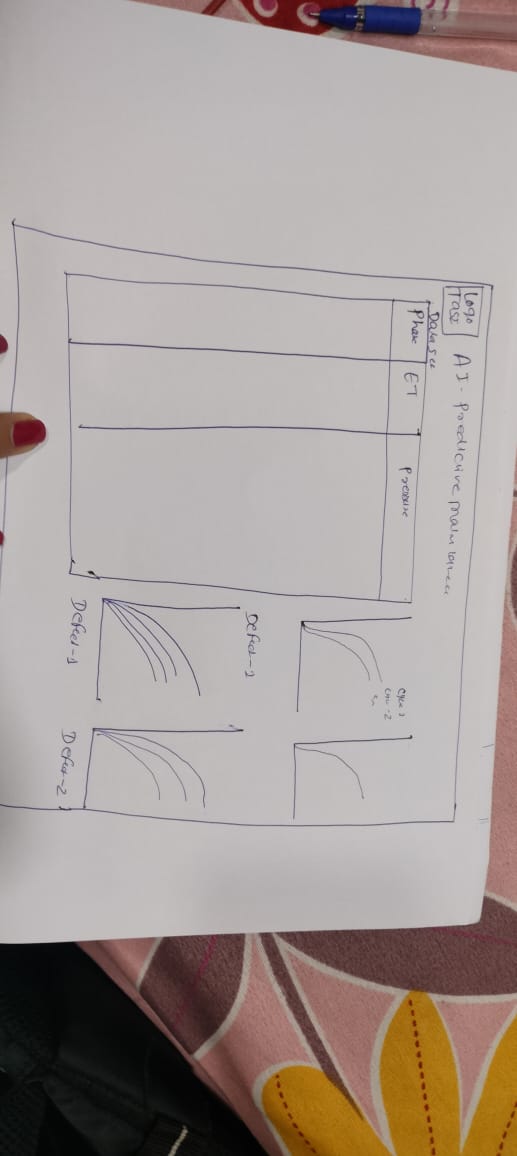 Logo
TASI
AI. Predictive
Dataset
Phase ET Pressure
Cycle 1
-2
Defect-1
Defect-1
Defect-2